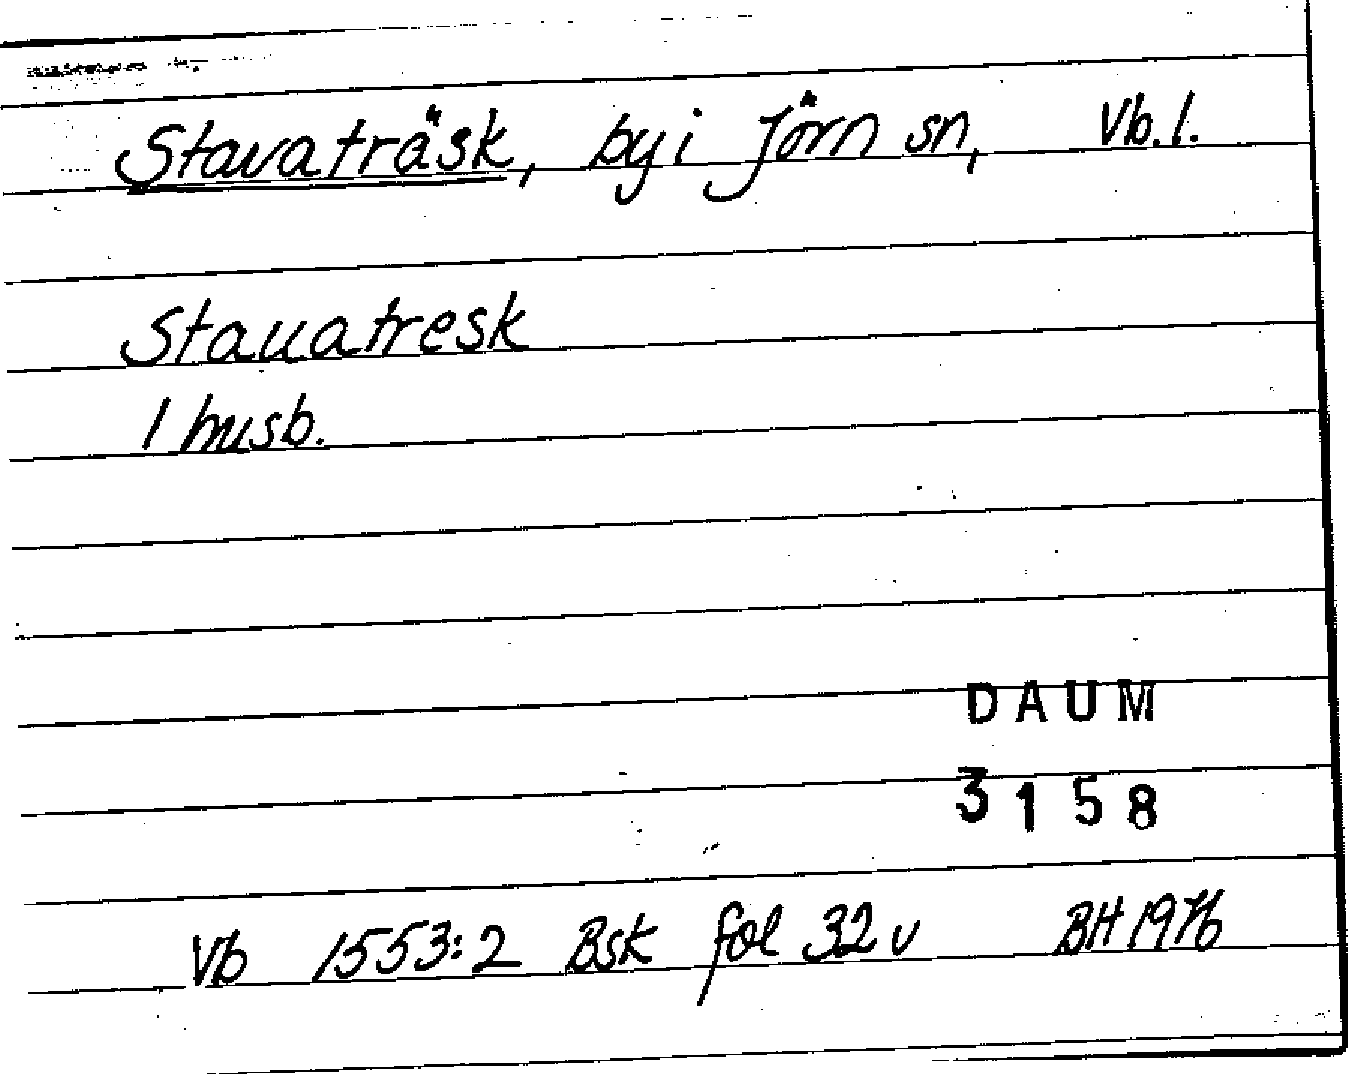 Stavaträsk, by i Jörn sn, Vb.l.
Stauatresk
1 husb.
DAUM
3158
Vb 1553:2 Bsk fol 32 v BH 1976